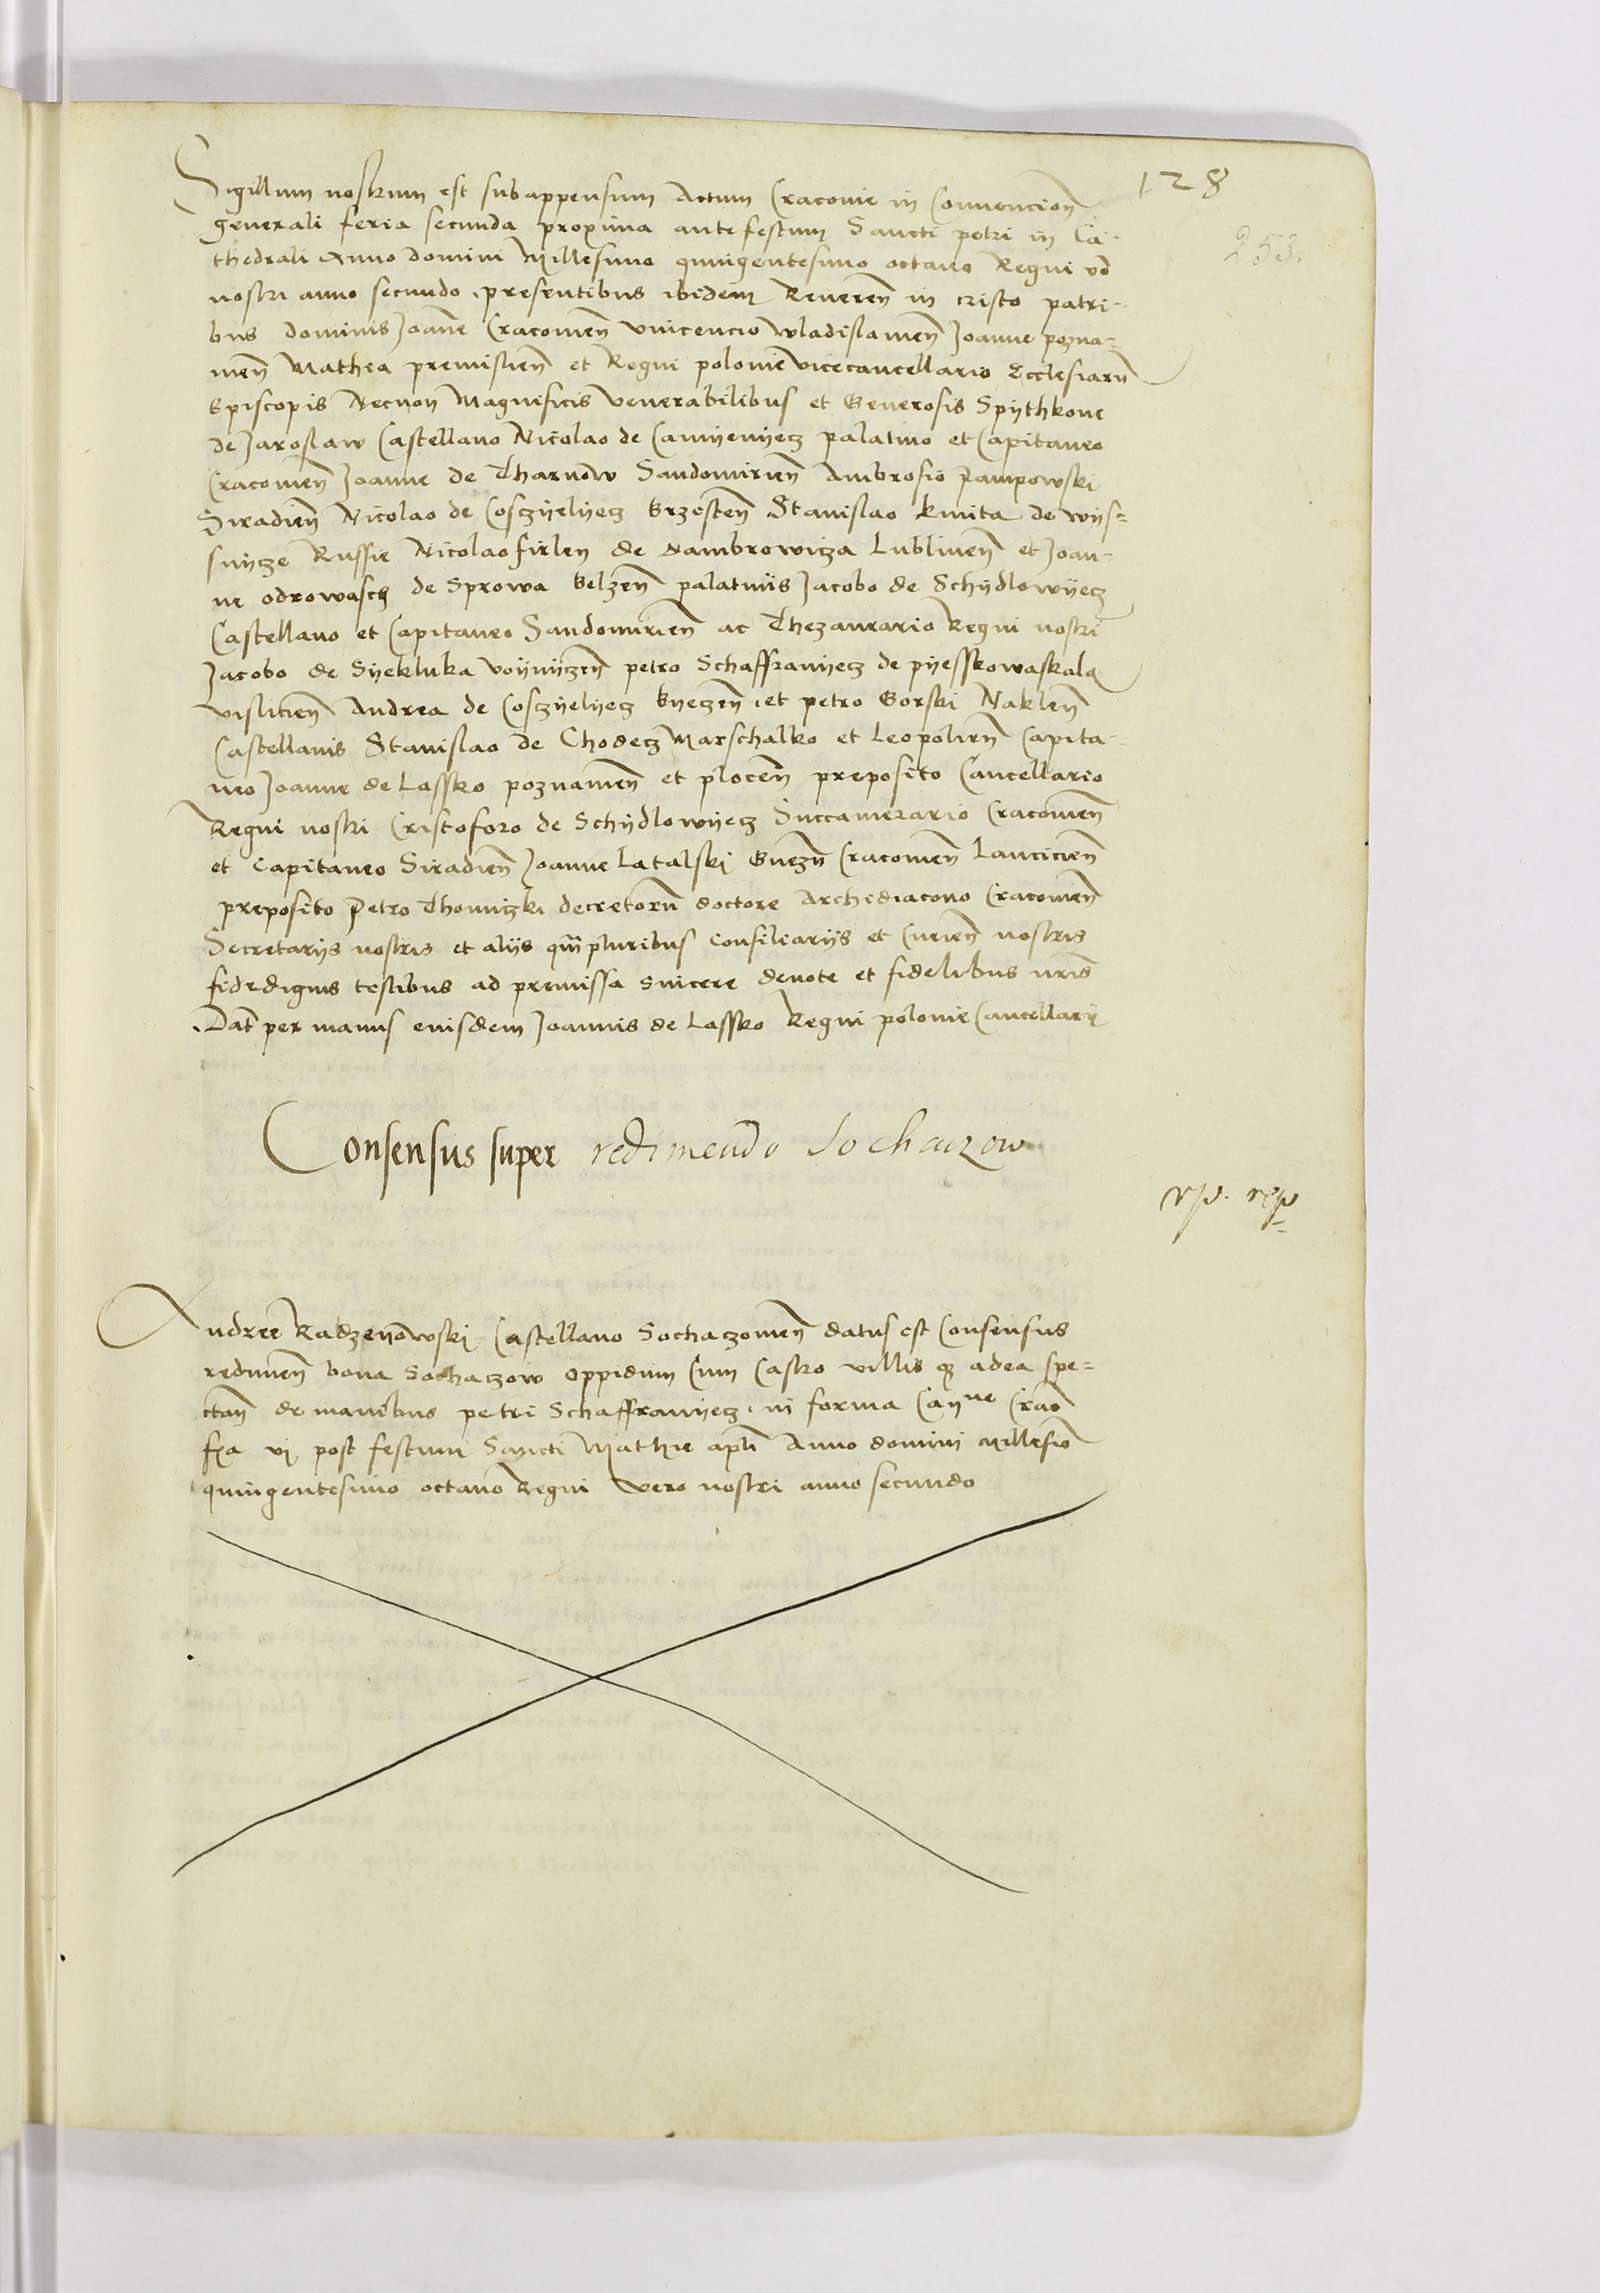 128
253.
Sigillum nostrum est subappensum Actum Cracovie in Convencion̄
generali feria secunda proxima ante festum Sancti petri in Ca-
thedrali Anno domini Millesimo quingentesimo octavo Regni vō
nostri anno secundo. presentibus ibidem Reveren̄ in cristo patri-
bus dominis Joanne Cracovien̄ vincencio Wladislavien̄ Joanne pozna-
nien̄ Mathia premislien̄ et Regni polonie vicecancellario Ecclesiarū
Episcopis Necnon Magnificis venerabilibus et Generosis Spythkone
de Jaroslaw Castellano Nicolao de Camyenyecz palatino et Capitaneo
Cracovien̄ Joanne de Tharnow Sandomirien̄ Ambrosio Pampowski
Siradien̄ Nicolao de Cosczyelyecz Brzesten̄ Stanislao kmita de wys-
snycze Russie Nicolao firley de dambrowicza Lublinen̄ et Joan-
ne odrowasch de Sprowa belzen̄ palatinis Jacobo de Schydlowyecz
Castellano et Capitaneo Sandomirien̄ ac Thezaurario Regni nostri
Jacobo de Syekluka voyniczen̄ petro Schaffranyecz de pyesskowaskala
vislicien̄ Andrea de Cosczyelyecz byeczen̄ et petro Gorski Naklen̄
Castellanis Stanislao de Chodecz Marschalko et Leopolien̄ Capita-
neo Joanne de Lassko poznanien̄ et plocen̄ preposito Cancellario
Regni nostri Cristoforo de Schydlowyecz Succamerario Cracovien̄
et Capitaneo Siradien̄ Joanne Latalski Gnezn̄ Cracovien̄ Lancicien̄
preposito Petro Thomiczki decretorū doctore Archidiacono Cracovien̄
Secretariis nostris et aliis quāpluribus Consiliariis et Curien̄ nostris
fidedignis testibus ad premissa sincere devote et fidelibus nr̄is
Dat̄ per manus eiusdem Joannis de Lassko Regni polonie Cancellarii
Consensus super redimendo Sochaczow
Andree Radzeyowski Castellano Sochaczovien̄ datus est Consensus
redimen̄ bona Sochaczow Oppidum Cum Castro villis q; ad ea spe-
ctan̄ de manibus petri Schaffranyecz. in forma Canne Crac̄
fr̄a vi post festum Sancti Mathie ap̄li Anno domini Millesīo
quingentesimo octavo Regni vero nostri anno secundo